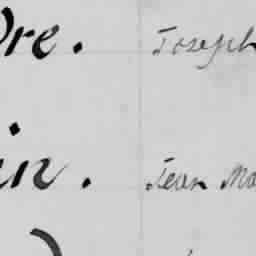 re. Joseph
in. Jean Ma